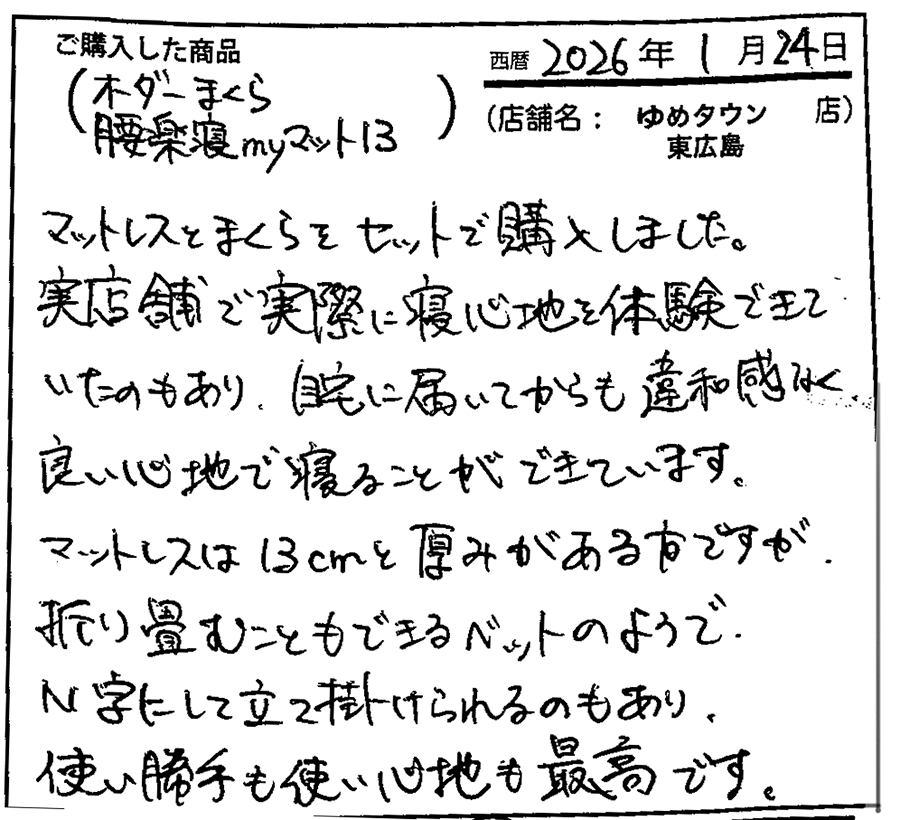 ご購入した商品
西暦 2026年 1月24日
(オーダーまくら
腰楽寝myマット13)
(店舗名： ゆめタウン 店)
東広島
マットレスとまくらをセットで購入しました。
実店舗で実際に寝心地を体験できて
いたのもあり、自宅に届いてからも違和感なく
良い心地で寝ることができています。
マットレスは13cmと厚みがある方ですが、
折り畳むこともできるベットのようで、
N字にして立て掛けられるのもあり、
使い勝手も使い心地も最高です。